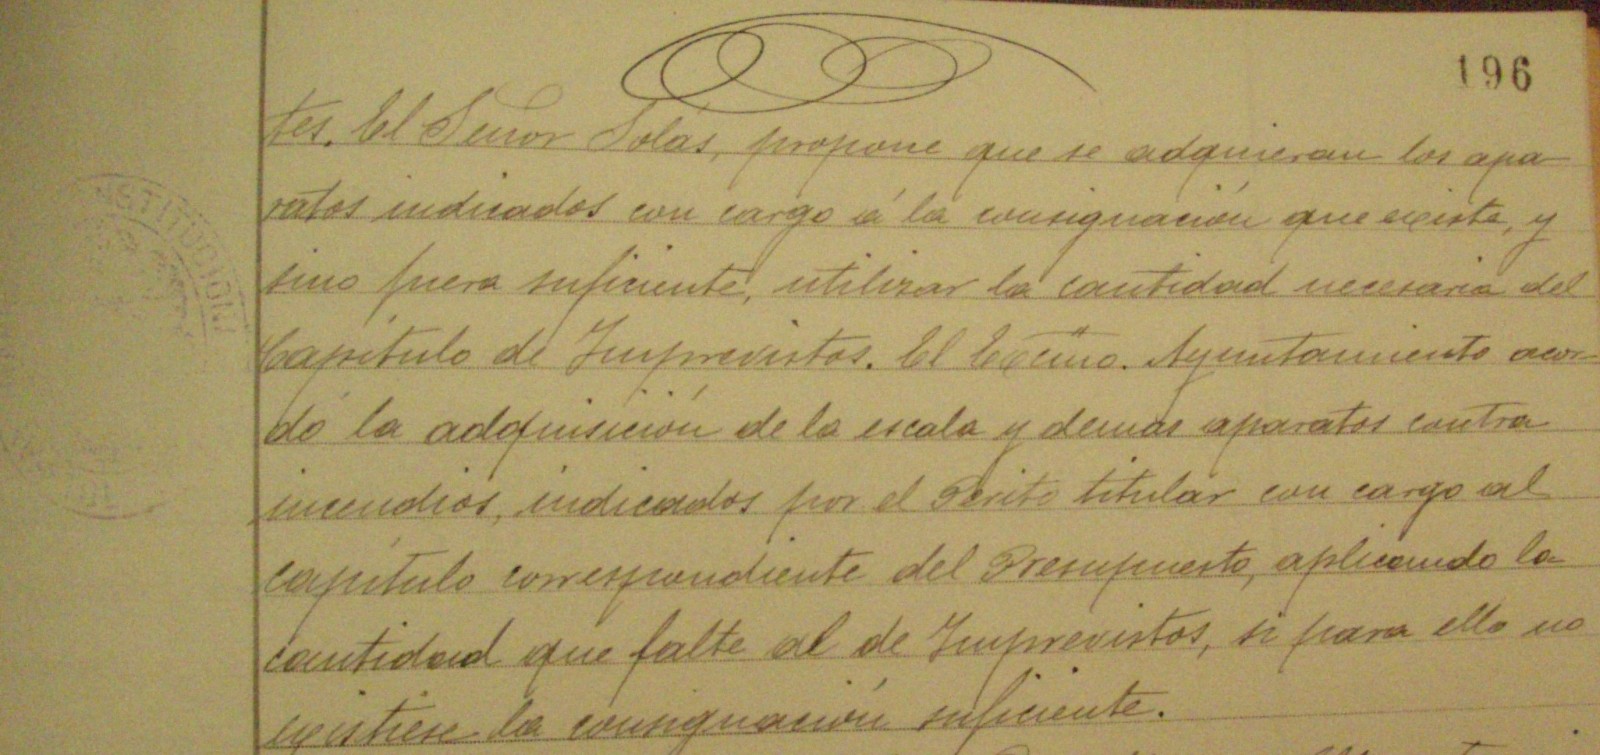 196
tes. El Señor Solás, propone que se adquieran los apa-
ratos indicados con cargo á la consignación que existe, y
sino fuera suficiente, utilizar la cantidad necesaria del
Capítulo de Imprevistos. El Excmo. Ayuntamiento acor-
dó la adquisición de la escala y demás aparatos contra
incendios, indicados por el Perito titular con cargo al
capítulo correspondiente del Presupuesto, aplicando la
cantidad que falte al de Imprevistos, si para ello no
existiese la consignación suficiente.